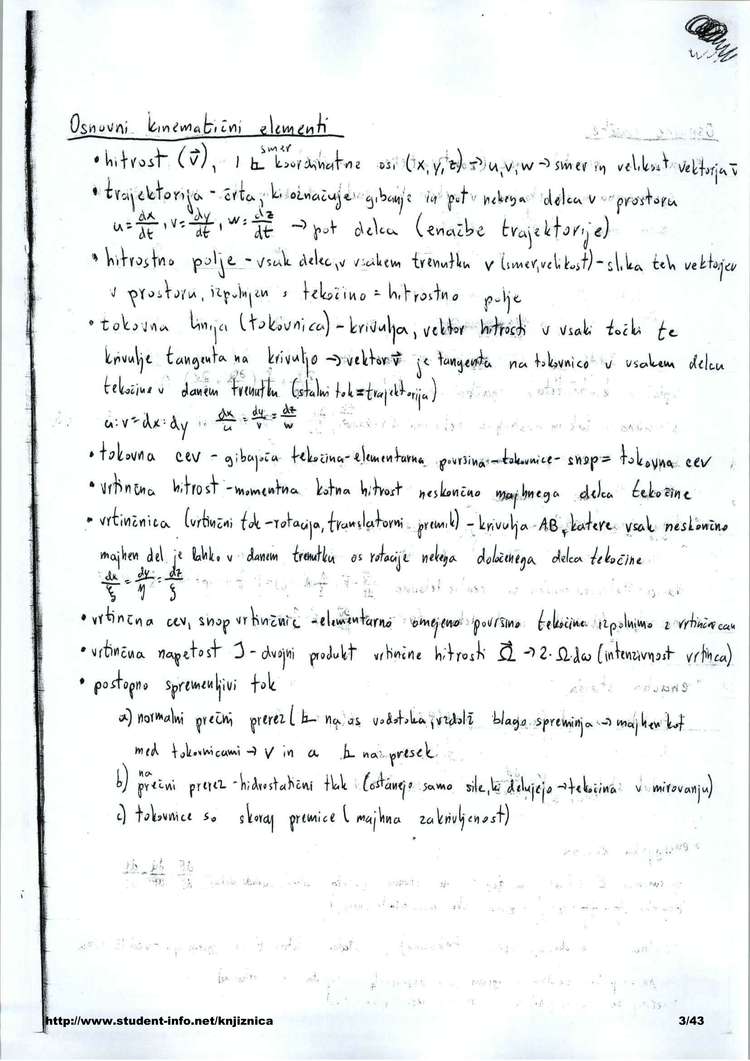 Osnovni kinematični elementi
• hitrost (v⃗), 1 ⊾ smer koordinatne osi (x, y, z) → u, v, w → smer in velikost vektorja v⃗
• trajektorija - črta, ki označuje gibanje in pot nekega delca v prostoru
u = dx/dt, v = dy/dt, w = dz/dt → pot delca (enačbe trajektorije)
• hitrostno polje - vsak delec, v vsakem trenutku v (smer, velikost) - slika teh vektorjev
v prostoru, izpolnjen s tekočino = hitrostno polje
• tokovna linija (tokovnica) - krivulja, vektor hitrosti v vsaki točki te
krivulje tangenta na krivuljo → vektor v⃗ je tangenta na tokovnico v vsakem delcu
tekočine v danem trenutku (stalni tok = trajektorija)
u:v = dx:dy dx/u = dy/v = dz/w
• tokovna cev - gibajoča tekočina - elementarna površina - tokovnice - snop = tokovna cev
• vrtinčna hitrost - momentna kotna hitrost neskončno majhnega delca tekočine
• vrtinčnica (vrtinčni tok - rotacija, translatorni premik) - krivulja AB, katere vsak neskončno
majhen del je lahko v danem trenutku os rotacije nekega določenega delca tekočine
dx/ξ = dy/η = dz/ζ
• vrtinčna cev, snop vrtinčnic - elementarno omejeno površino tekočine izpolnimo z vrtinčnicam
• vrtinčna napetost J - dvojni produkt vrtinčne hitrosti Ω⃗ → 2·Ω·dω (intenzivnost vrtinca)
• postopno spremenljivi tok
a) normalni prečni prerez (⊾ na os vodotoka, vzdolž blago spreminja → majhen kot
med tokovnicami → v in a ⊾ na presek
b) na prečni prerez - hidrostatični tlak (ostanejo samo sile, ki delujejo → tekočina v mirovanju)
c) tokovnice so skoraj premice (majhna zakrivljenost)
http://www.student-info.net/knjiznica 3/43